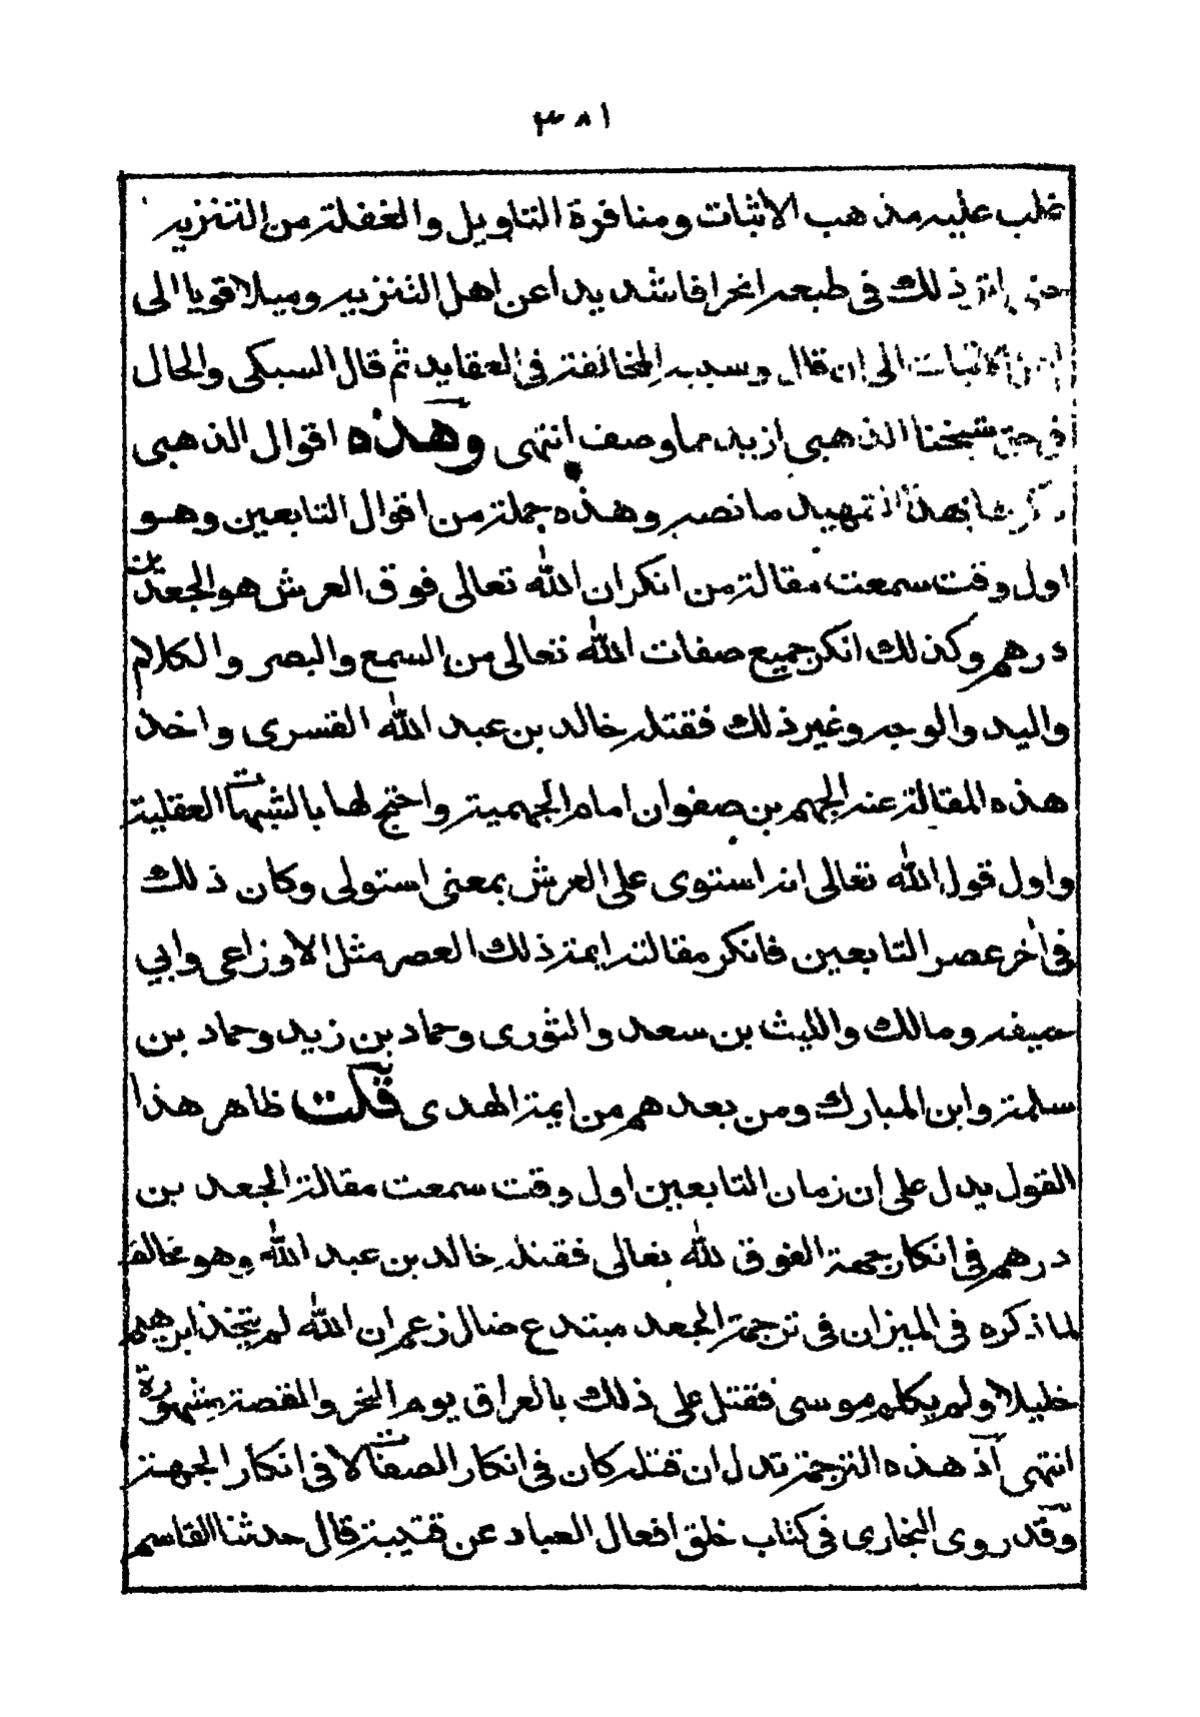 ٣٨١
غلب عليه مذهب الاثبات ومنافرة التاويل والغفلة من التنزيه
حتى اثر ذلك في طبعه انحرافا شديدا عن اهل التنزيه وميلا قويا الى
اهل الاثبات الى ان قال وسببه المخالفة في العقايد ثم قال السبكى والحال
في حق شيخنا الذهبى ازيد مما وصف انتهى وهذه اقوال الذهبى
بهذا التمهيد ما نصه وهذه جملة من اقوال التابعين وهو
اول وقت سمعت مقالة من انكر ان الله تعالى فوق العرش هو الجعد بن
درهم وكذلك انكر جميع صفات الله تعالى من السمع والبصر والكلام
واليد والوجه وغير ذلك فقتله خالد بن عبد الله القسرى واخذ
هذه المقالة عنه الجهم بن صفوان امام الجهمية واحتج لها بالشبهات العقلية
واول قول الله تعالى انه استوى على العرش بمعنى استولى وكان ذلك
في اخر عصر التابعين فانكر مقالته ايمة ذلك العصر مثل الاوزاعى وابي
حنيفه ومالك والليث بن سعد والثورى وحماد بن زيد وحماد بن
سلمة وابن المبارك ومن بعدهم من ايمة الهدى قلت ظاهر هذا
القول يدل على ان زمان التابعين اول وقت سمعت مقالة الجعد بن
درهم في انكار جهة الفوق لله تعالى فقتله خالد بن عبد الله وهو مخالف
لما ذكره في الميزان في ترجمة الجعد مبتدع ضال زعم ان الله لم يتخذ ابرهيم
خليلا ولم يكلم موسى فقتل على ذلك بالعراق يوم النحر والقصة مشهورة
انتهى اذ هذه الترجمة تدل ان قتله كان في انكار الصفات لا في انكار الجهة
وقد روى البخارى في كتاب خلق افعال العباد عن قتيبة قال حدثنا القاسم